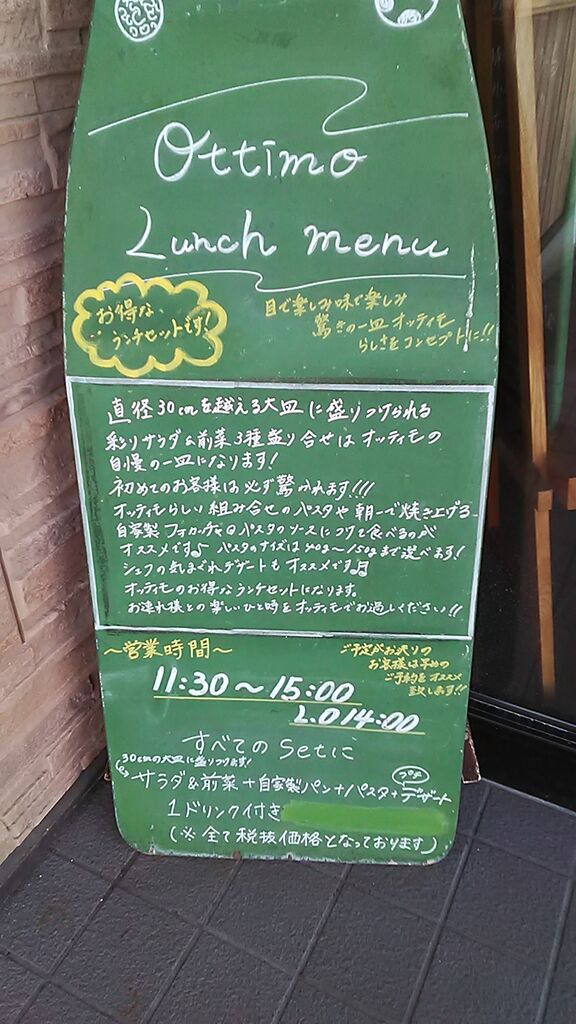 Ottimo
Lunch menu
お得な
ランチセットです!
目で楽しみ味で楽しみ
驚きの一皿オッティモ
らしさをコンセプトに!!
直径30cmを越える大皿に盛りつけられる
彩りサラダ&前菜3種盛り合せはオッティモの
自慢の一皿になります!
初めてのお客様は必ず驚かれます!!!
オッティモらしい組み合せのパスタや朝一で焼き上げる
自家製フォカッチャはパスタのソースにつけて食べるのが
オススメです♪ パスタのサイズは40g~150gまで選べます!
シェフの気まぐれデザートもオススメです♫
オッティモのお得なランチセットになります。
お連れ様との楽しいひと時をオッティモでお過しください!!
~営業時間~
ご予定がお決りの
お客様は早めの
ご予約をオススメ
致します!!
11:30~15:00
L.O14:00
すべてのSetに
30cmの大皿に盛りつけます!
サラダ&前菜+自家製パン+パスタ+プチデザート
1ドリンク付き
(※全て税抜価格となっております)